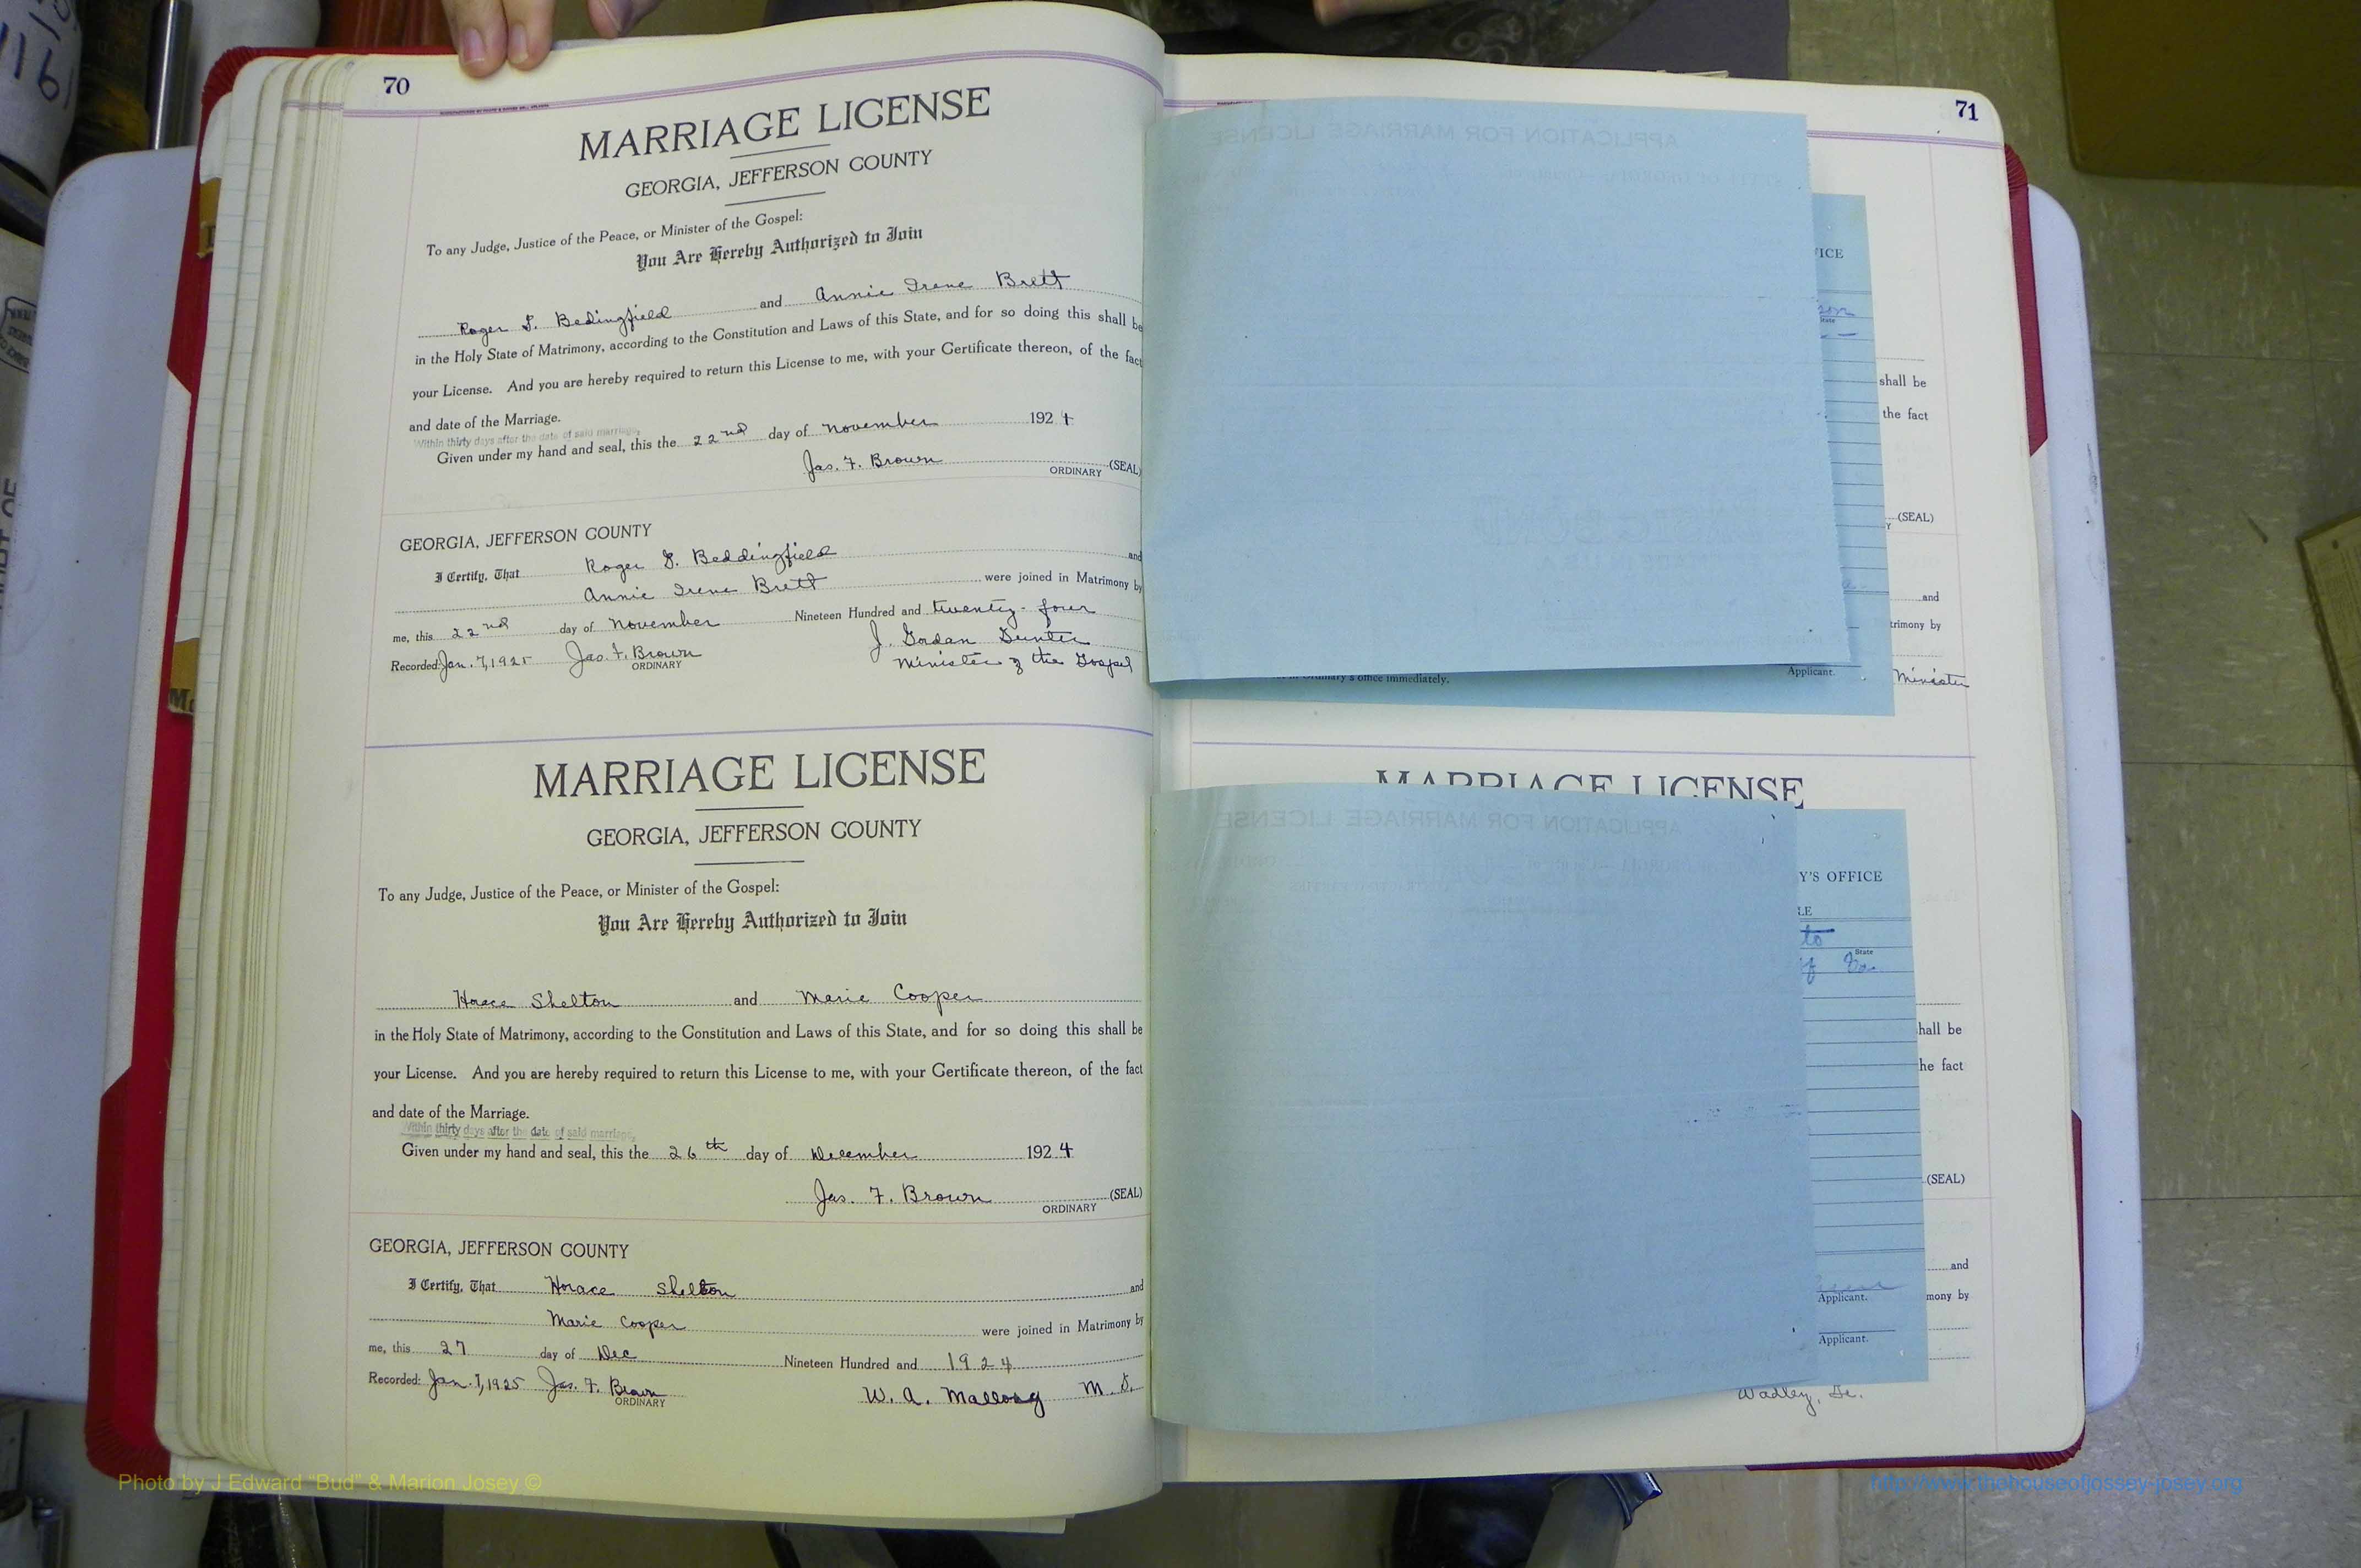 70
MARRIAGE LICENSE
GEORGIA, JEFFERSON COUNTY
To any Judge, Justice of the Peace, or Minister of the Gospel:
You Are Hereby Authorized to Join
Roger S. Bedingfield and Annie Irene Brett
in the Holy State of Matrimony, according to the Constitution and Laws of this State, and for so doing this shall be
your License. And you are hereby required to return this License to me, with your Certificate thereon, of the fact
and date of the Marriage.
Within thirty days after the date of said marriage,
Given under my hand and seal, this the 22nd day of November 1924
Jas. F. Brown (SEAL)
ORDINARY
GEORGIA, JEFFERSON COUNTY
I Certify, That Roger S. Beddingfield and
Annie Irene Brett were joined in Matrimony by
me, this 22nd day of November Nineteen Hundred and twenty-four
Recorded: Jan. 7, 1925 Jas. F. Brown J. Gordan
ORDINARY Minister of the Gospel
MARRIAGE LICENSE
GEORGIA, JEFFERSON COUNTY
To any Judge, Justice of the Peace, or Minister of the Gospel:
You Are Hereby Authorized to Join
Horace Shelton and Marie Cooper
in the Holy State of Matrimony, according to the Constitution and Laws of this State, and for so doing this shall be
your License. And you are hereby required to return this License to me, with your Certificate thereon, of the fact
and date of the Marriage.
Within thirty days after the date of said marriage,
Given under my hand and seal, this the 26th day of December 1924
Jas. F. Brown (SEAL)
ORDINARY
GEORGIA, JEFFERSON COUNTY
I Certify, That Horace Shelton and
Marie Cooper were joined in Matrimony by
me, this 27 day of Dec Nineteen Hundred and 1924
Recorded: Jan. 7, 1925 Jas. F. Brown W. A. Mallory
ORDINARY
71
APPLICATION FOR MARRIAGE LICENSE
ICE
State
shall be
the fact
(SEAL)
and
trimony by
MADE IN U.S.A.
Applicant.
Ordinary's office immediately.
Minister
MARRIAGE LICENSE
APPLICATION FOR MARRIAGE LICENSE
Y'S OFFICE
LE
to
State
Ga
hall be
he fact
(SEAL)
and
Applicant.
mony by
Applicant.
Wadley, Ga.
Photo by J Edward “Bud” & Marion Josey ©
http://www.thehouseofjossey-josey.org